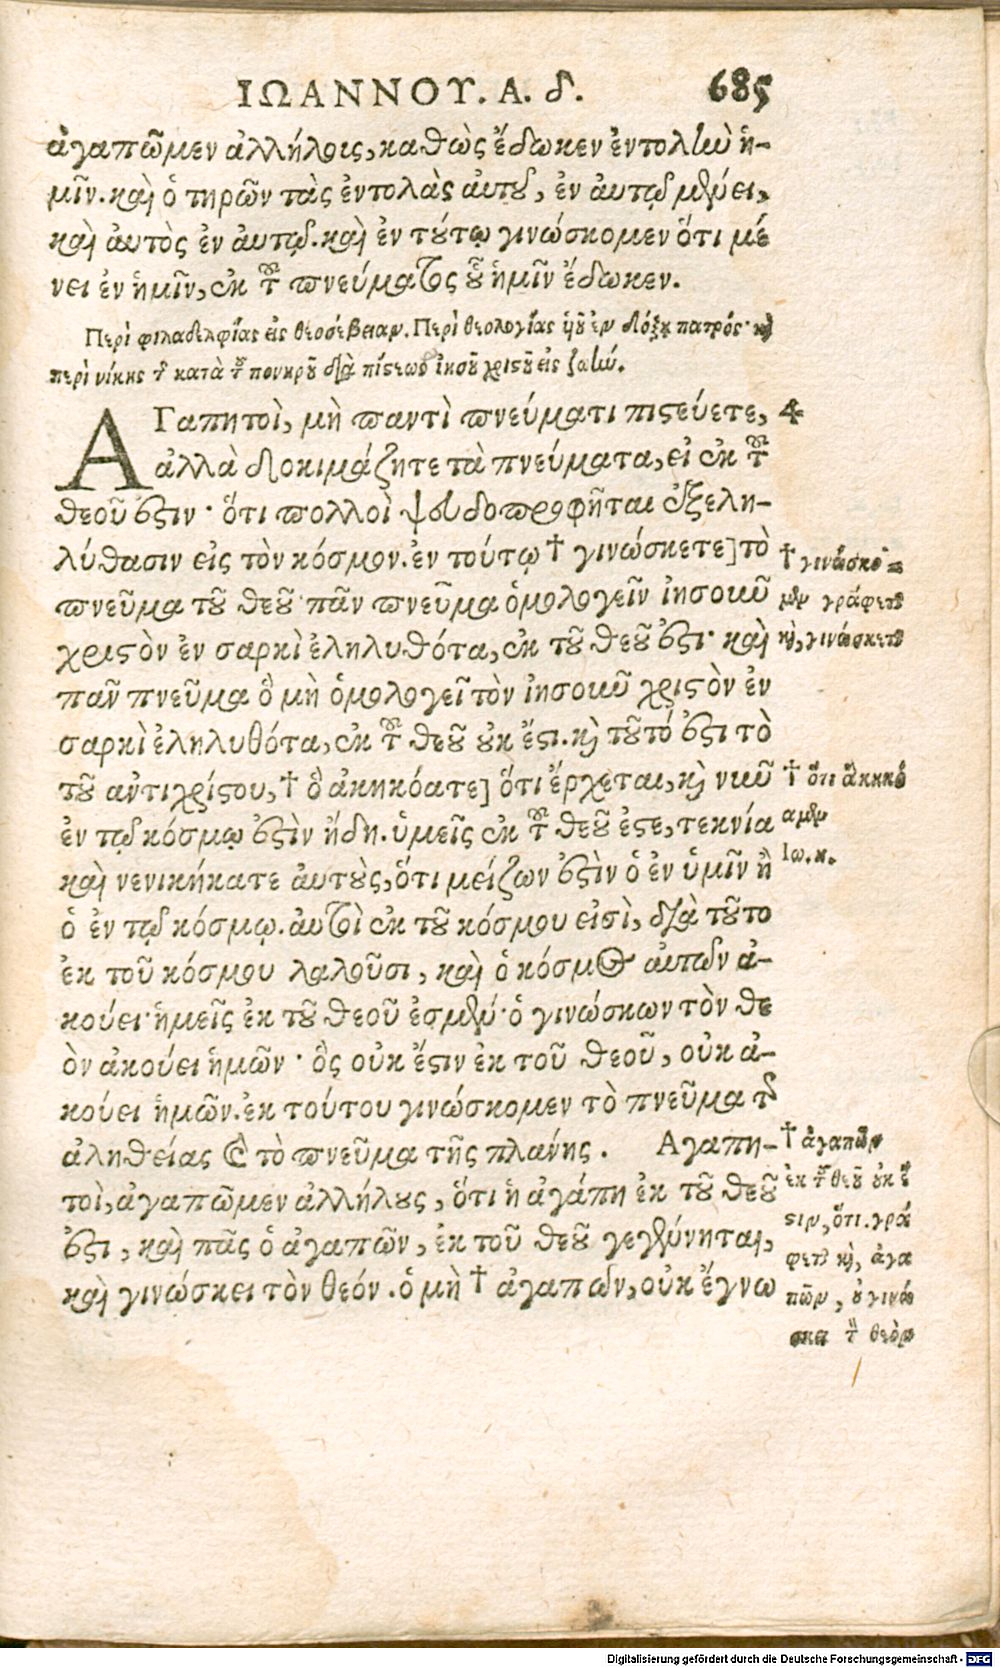 ΙΩΑΝΝΟΥ. Α. δ. 685
ἀγαπῶμεν ἀλλήλοις, καθὼς ἔδωκεν ἐντολὴν ἡ-
μῖν. καὶ ὁ τηρῶν τὰς ἐντολὰς αὐτοῦ, ἐν αὐτῷ μένει,
καὶ αὐτὸς ἐν αὐτῷ. καὶ ἐν τούτῳ γινώσκομεν ὅτι μέ
νει ἐν ἡμῖν, ἐκ τοῦ πνεύματος οὗ ἡμῖν ἔδωκεν.
Περὶ φιλαδελφίας εἰς θεοσέβειαν. Περὶ θεολογίας υἱοῦ ἐν δόξῃ πατρός· καὶ
περὶ νίκης τῆς κατὰ τοῦ πονηροῦ διὰ πίστεως ἰησοῦ χριστοῦ εἰς ζωήν.
ΑΓαπητοὶ, μὴ παντὶ πνεύματι πιστεύετε, 4
ἀλλὰ δοκιμάζητε τὰ πνεύματα, εἰ ἐκ τοῦ
θεοῦ ἐστιν· ὅτι πολλοὶ ψευδοπροφῆται ἐξελη-
λύθασιν εἰς τὸν κόσμον. ἐν τούτῳ † γινώσκετε] τὸ
πνεῦμα τοῦ θεοῦ· πᾶν πνεῦμα ὁμολογεῖν ἰησοῦν
χριστὸν ἐν σαρκὶ ἐληλυθότα, ἐκ τοῦ θεοῦ ἐστι· καὶ
πᾶν πνεῦμα ὃ μὴ ὁμολογεῖ τὸν ἰησοῦν χριστὸν ἐν
σαρκὶ ἐληλυθότα, ἐκ τοῦ θεοῦ οὐκ ἔστι. καὶ τοῦτό ἐστι τὸ
τοῦ ἀντιχρίστου, † ὃ ἀκηκόατε] ὅτι ἔρχεται, καὶ νυῦ
ἐν τῷ κόσμῳ ἐστὶν ἤδη. ὑμεῖς ἐκ τοῦ θεοῦ ἐστε, τεκνία
καὶ νενικήκατε αὐτοὺς, ὅτι μείζων ἐστὶν ὁ ἐν ὑμῖν ἢ
ὁ ἐν τῷ κόσμῳ. αὐτοὶ ἐκ τοῦ κόσμου εἰσὶ, διὰ τοῦτο
ἐκ τοῦ κόσμου λαλοῦσι, καὶ ὁ κόσμος αὐτῶν ἀ-
κούει· ἡμεῖς ἐκ τοῦ θεοῦ ἐσμέν· ὁ γινώσκων τὸν θε
ὸν ἀκούει ἡμῶν· ὃς οὐκ ἔστιν ἐκ τοῦ θεοῦ, οὐκ ἀ-
κούει ἡμῶν. ἐκ τούτου γινώσκομεν τὸ πνεῦμα τῆς
ἀληθείας καὶ τὸ πνεῦμα τῆς πλάνης. Αγαπη-
τοὶ, ἀγαπῶμεν ἀλλήλους, ὅτι ἡ ἀγάπη ἐκ τοῦ θεοῦ
ἐστι, καὶ πᾶς ὁ ἀγαπῶν, ἐκ τοῦ θεοῦ γεγένηται,
καὶ γινώσκει τὸν θεόν. ὁ μὴ † ἀγαπῶν, οὐκ ἔγνω
† γινώσκο-
μεν γράφεται
καὶ, γινώσκεται
† ὅτι ἀκηκό
αμεν
Ιω. κ.
† ἀγαπῶν
ἐκ τοῦ θεοῦ οὐκ ἔ
στιν, ὅτι. γρά
φεται καὶ, ἀγα
πῶν, οὐ γινώ
σκει τὸν θεὸν
Digitalisierung gefördert durch die Deutsche Forschungsgemeinschaft - DFG